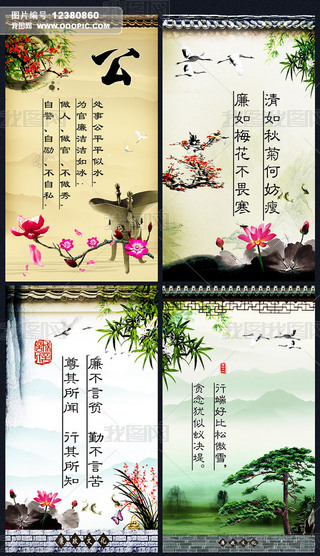 图片编号：12380860
我图网 www.OOOPIC.COM
公
处事公平平似水
为官廉洁洁如冰
做人、做官、不做秀
自警、自励、不自私
清如秋菊何妨瘦
廉如梅花不畏寒
廉不言贫 勤不言苦
尊其所闻 行其所知
行端好比松傲雪，
贪念犹似蚁决堤。
廉政文化
廉政文化